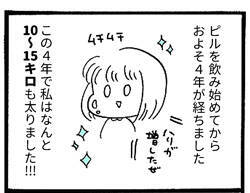 ピルを飲み始めてから
およそ4年が経ちました
ムチムチ
ハリが
増したぜ
この4年で私はなんと
10〜15キロも太りました!!!